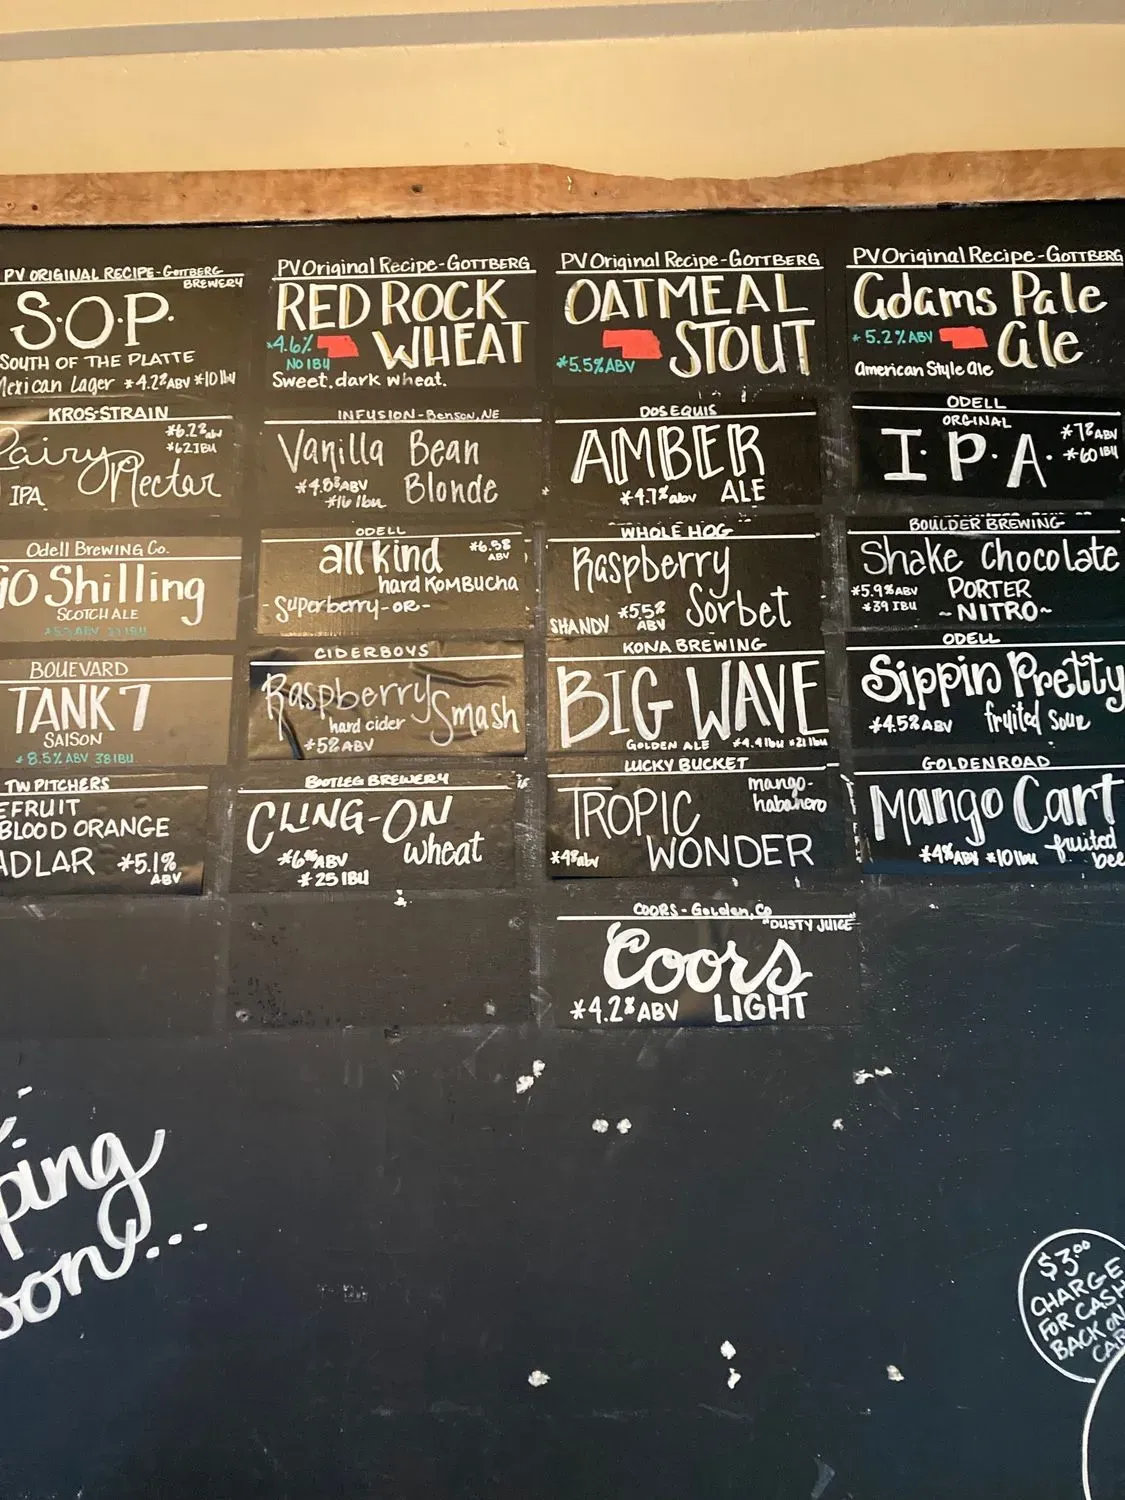 PV ORIGINAL RECIPE-GOTTBERG
BREWERY
S.O.P.
SOUTH OF THE PLATTE
Mexican Lager *4.2%ABV *10 IBU
PV Original Recipe-GOTTBERG
RED ROCK
WHEAT
*4.6%
NO IBU
Sweet, dark wheat.
PV Original Recipe-GOTTBERG
OATMEAL
STOUT
*5.5%ABV
PV Original Recipe-GOTTBERG
Adams Pale
Ale
*5.2%ABV
American Style Ale
KROS-STRAIN
Fairy
Nectar
*6.2%abv
*62IBU
IPA
INFUSION-Benson, NE
Vanilla Bean
Blonde
*4.8%ABV
*16 ibu
DOS EQUIS
AMBER
*4.7%abv ALE
ODELL
ORGINAL
I.P.A.
*7%ABV
*60 IBU
Odell Brewing Co.
90 Shilling
SCOTCH ALE
ODELL
all kind
*6.5%
ABV
hard KOMBUCHA
-Superberry-OR-
WHOLE HOG
Raspberry
Sorbet
SHANDY *5.5%
ABV
BOULDER BREWING
Shake Chocolate
*5.9%ABV PORTER
*39 IBU ~NITRO~
BOUEVARD
TANK 7
SAISON
*8.5% ABV 38 IBU
CIDERBOYS
Raspberry Smash
hard cider
*5%ABV
KONA BREWING
BIG WAVE
GOLDEN ALE *4.4 ibu *21 ibu
ODELL
Sippin Pretty
*4.5%ABV fruited sour
TW PITCHERS
EFRUIT
BLOOD ORANGE
ADLAR *5.1%
ABV
BOOTLEG BREWERY
CLING-ON
wheat
*25 IBU
LUCKY BUCKET
mango-
habanero
TROPIC
WONDER
*4%abv
GOLDENROAD
Mango Cart
*4%ABV *10 ibu fruited
bee
COORS-Golden, Co
"DUSTY JUICE"
Coors
LIGHT
*4.2%ABV
ping
oon...
$3.00
CHARGE
FOR CASH
BACK ON
CAR